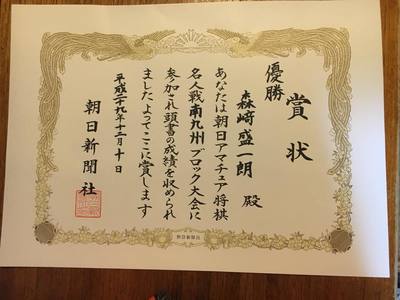 賞状
優勝
森﨑盛一朗 殿
あなたは朝日アマチュア将棋
名人戦南九州ブロック大会に
参加され頭書の成績を収められ
ましたよってここに賞します
平成二十九年十二月十日
朝日新聞社